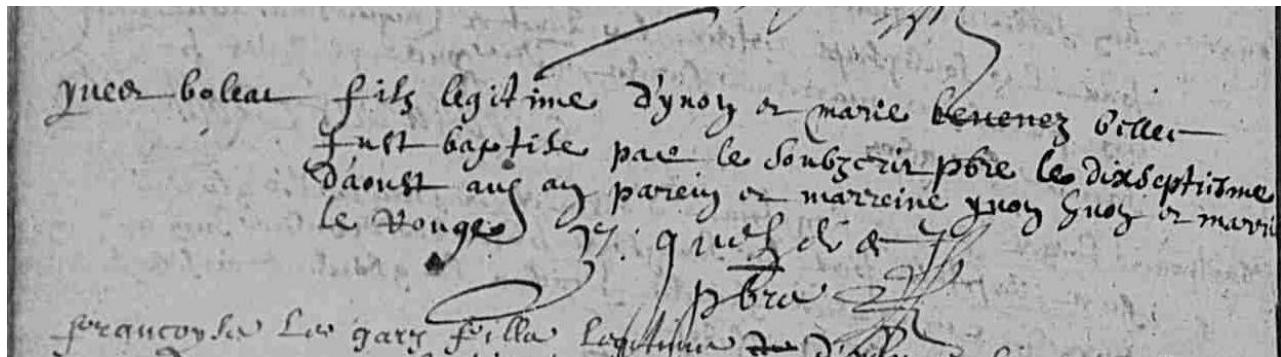 yues boleat fils legitime d'ynon et marie keuenez
fust baptise par le soubzcrit pbre le dixseptiesme
d'aoust aud an parein et marreine ynon et marie
le Rouge
pbre
francoyse Le gars fille legitime